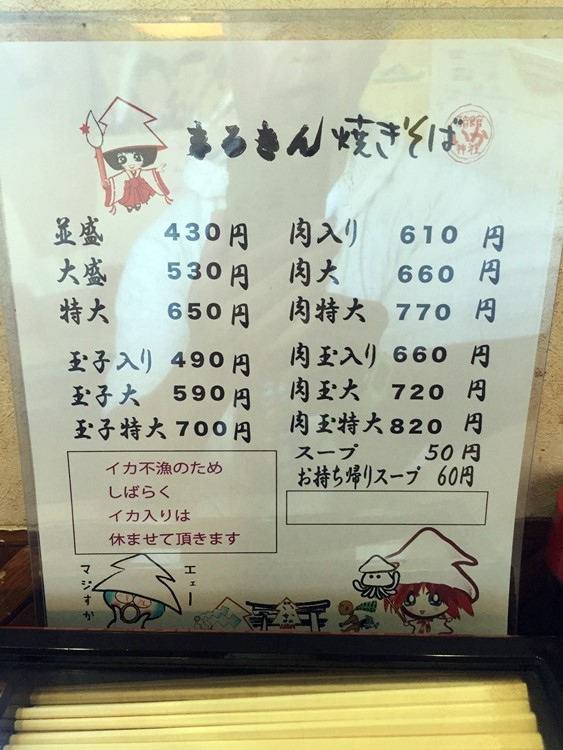 まるきん 焼きそば
並盛 430円
大盛 530円
特大 650円
玉子入り 490円
玉子大 590円
玉子特大 700円
肉入り 610円
肉大 660円
肉特大 770円
肉玉入り 660円
肉玉大 720円
肉玉特大 820円
スープ 50円
お持ち帰りスープ 60円
イカ不漁のため
しばらく
イカ入りは
休ませて頂きます
エェー
マジすか